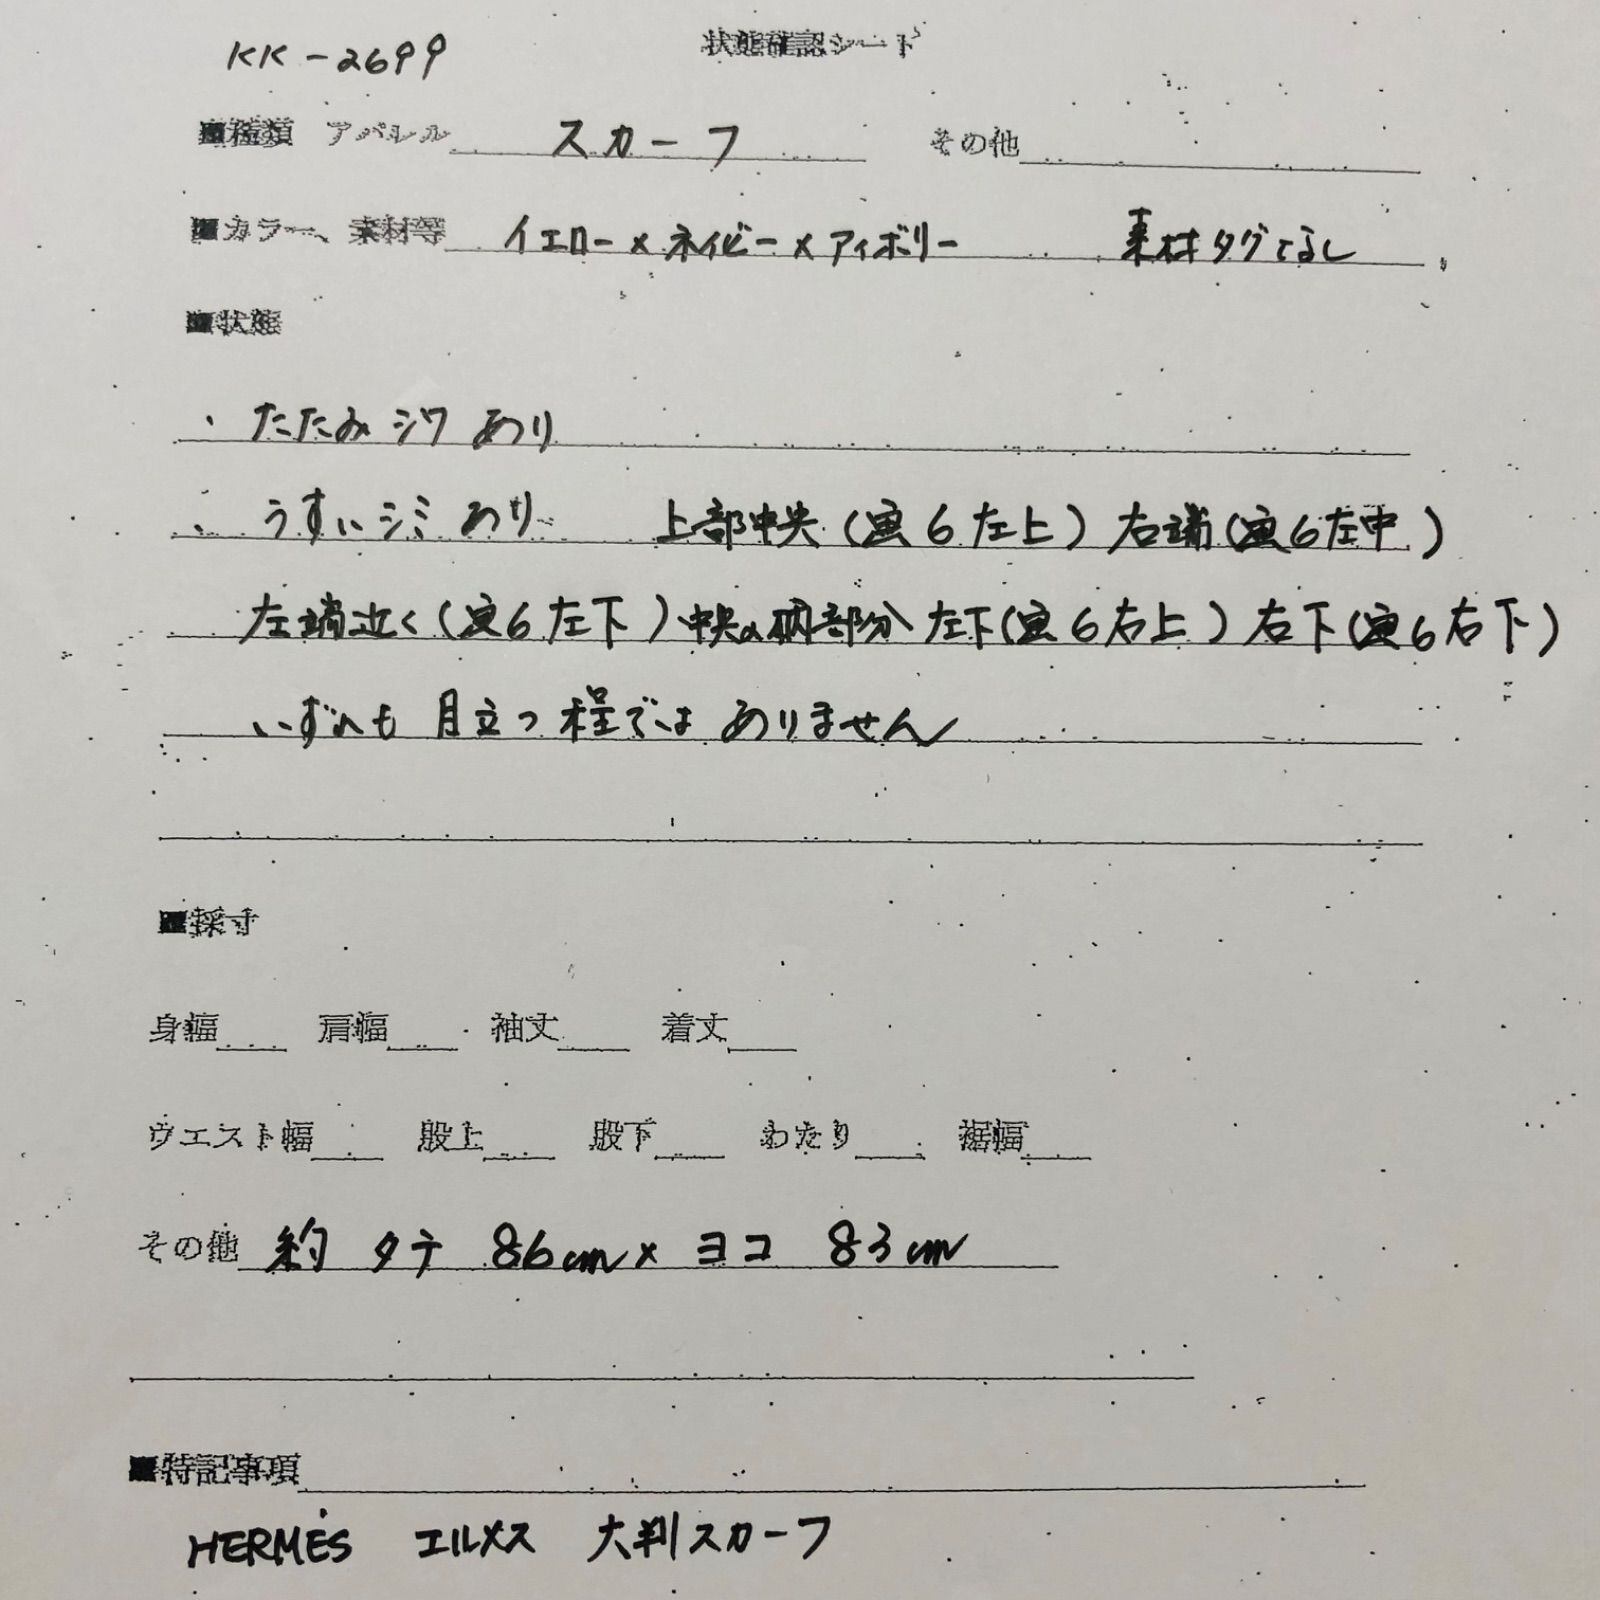 KK-2699
状態確認シート
■種類 アパレル スカーフ その他
■カラー、素材等 イエロー×ネイビー×アイボリー 素材タグなし
■状態
・たたみジワ あり
・うすいシミ あり 上部中央(画6左上) 右端(画6左中)
左端近く(画6左下) 中央の柄部分 左下(画6右上) 右下(画6右下)
いずれも 目立つ程では ありません
■採寸
身幅 肩幅 袖丈 着丈
ウエスト幅 股上 股下 わたり 裾幅
その他 約 タテ 86cm× ヨコ 83cm
■特記事項
HERMÈS エルメス 大判スカーフ